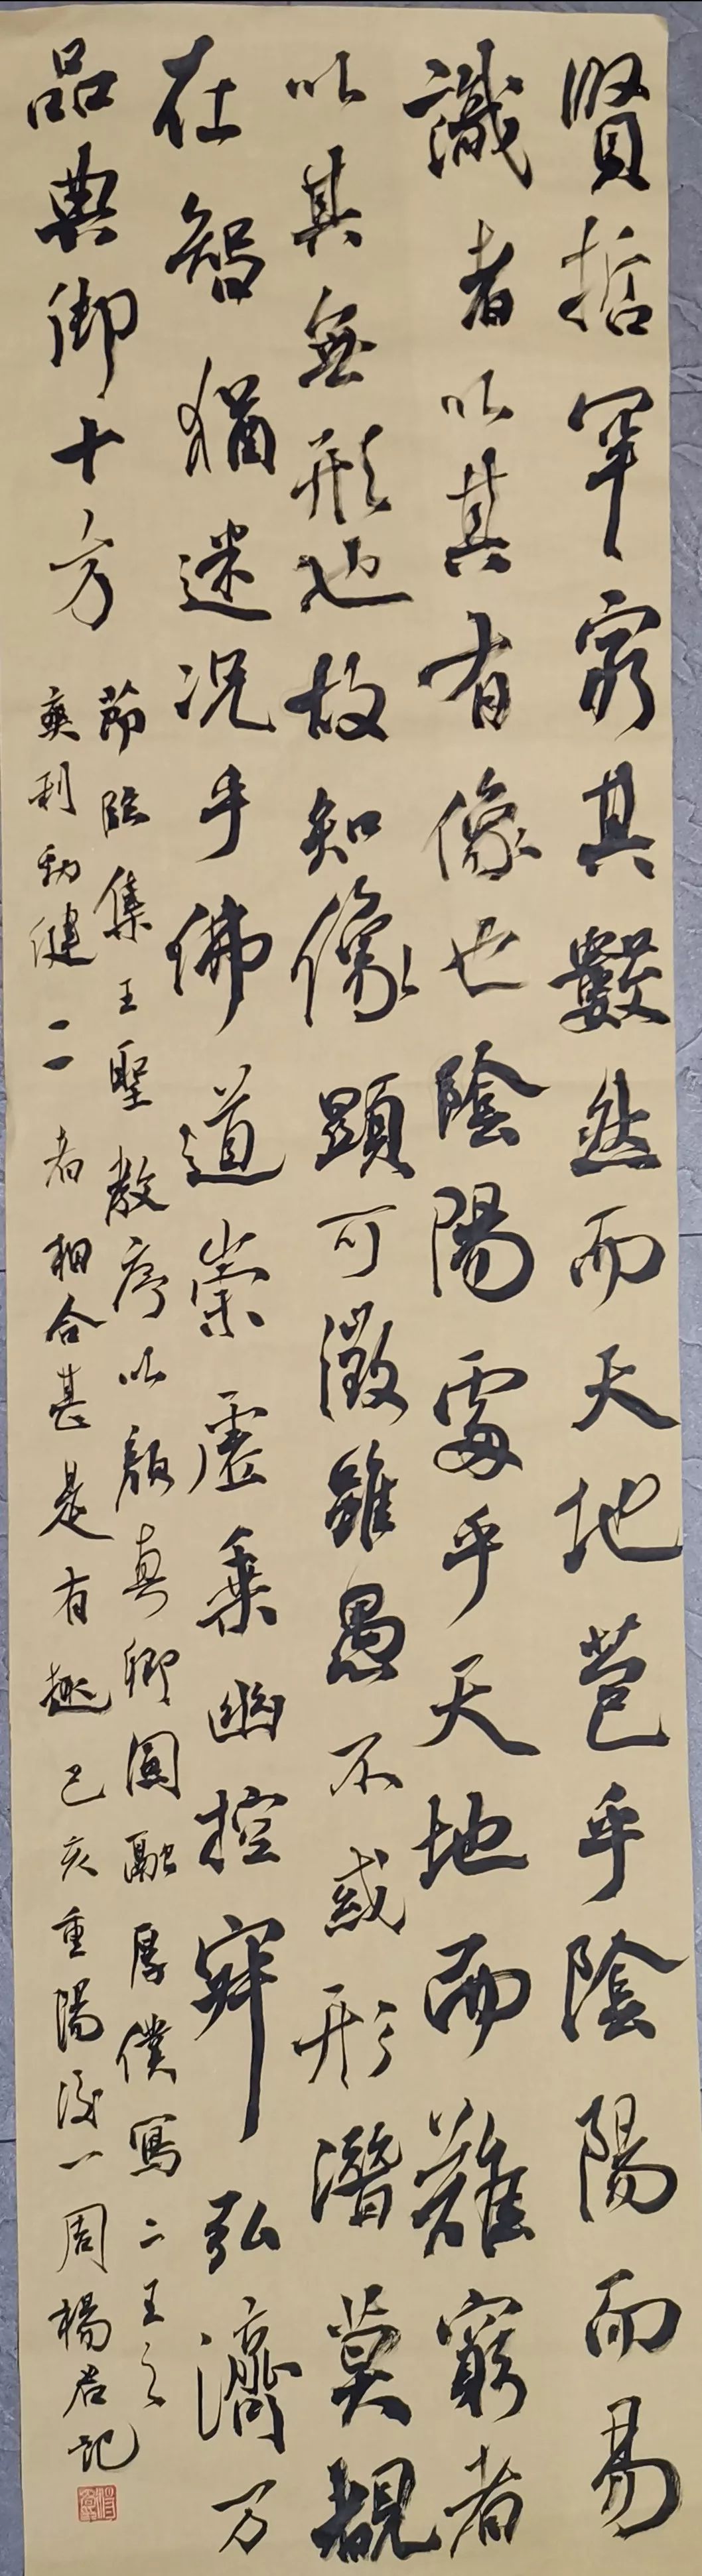 賢哲罕窮其數然而天地苞乎陰陽而易
識者以其有像也陰陽處乎天地而難窮者
以其無形也故知像顯可徵雖愚不惑形潛莫覩
在智猶迷况乎佛道崇虛乗幽控寂弘濟万
品典御十方
節臨集王聖教序以顔真卿圓融厚僕寫二王之
爽利勁健二者相合甚是有趣己亥重陽後一周楊君記